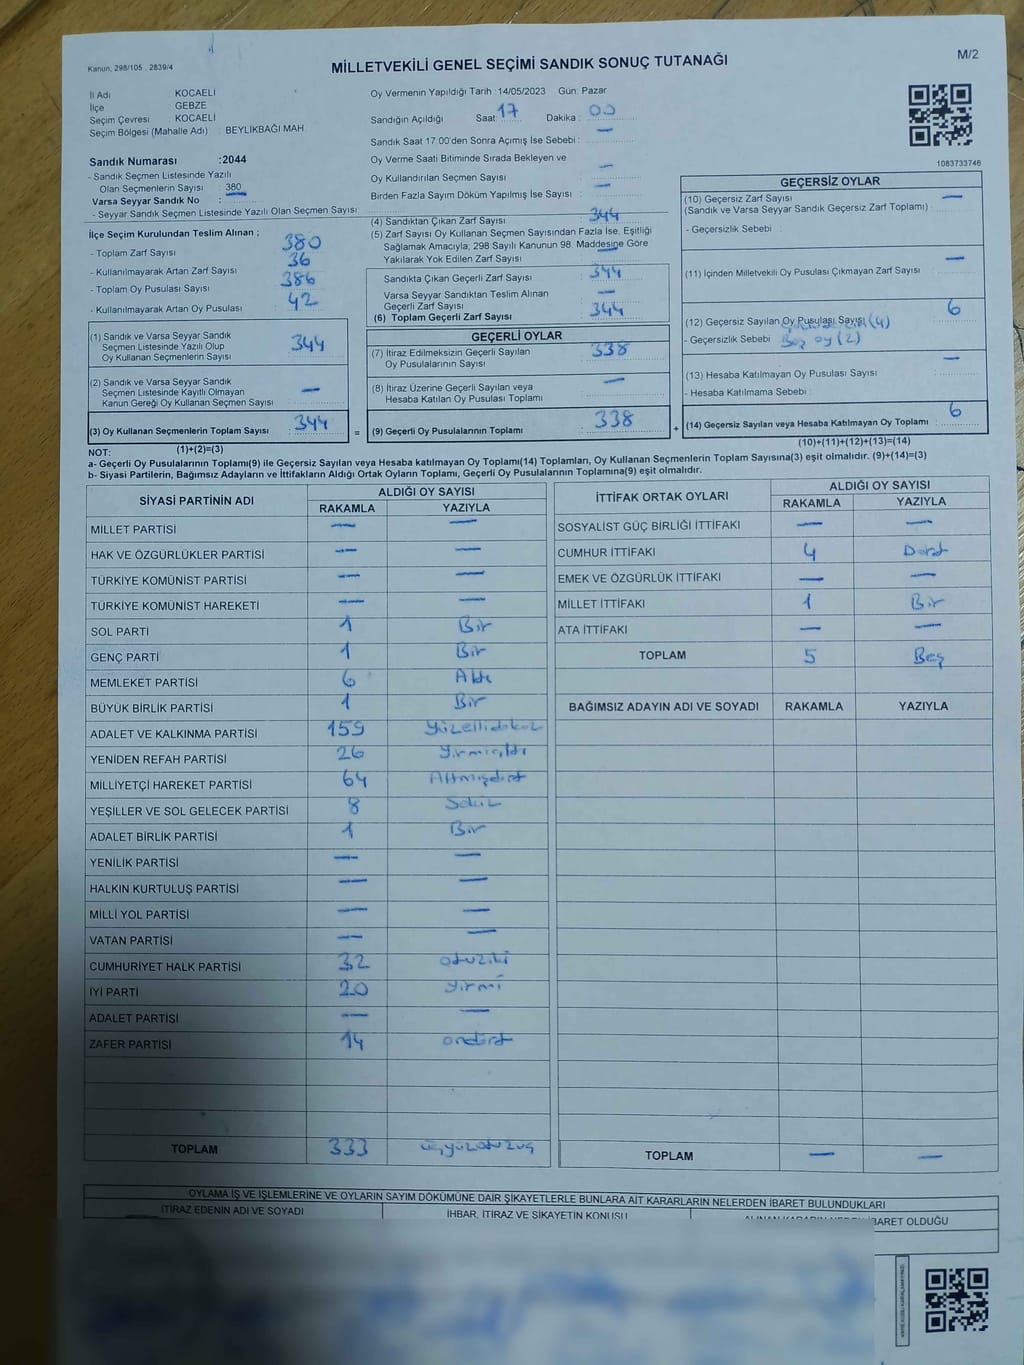 Kanun, 298/105 , 2839/4
MİLLETVEKİLİ GENEL SEÇİMİ SANDIK SONUÇ TUTANAĞI
M/2
İl Adı KOCAELİ
İlçe GEBZE
Seçim Çevresi : KOCAELİ
Seçim Bölgesi (Mahalle Adı) : BEYLİKBAĞI MAH.
Sandık Numarası :2044
- Sandık Seçmen Listesinde Yazılı
Olan Seçmenlerin Sayısı 380
Varsa Seyyar Sandık No :
- Seyyar Sandık Seçmen Listesinde Yazılı Olan Seçmen Sayısı:
İlçe Seçim Kurulundan Teslim Alınan ;
- Toplam Zarf Sayısı 380
- Kullanılmayarak Artan Zarf Sayısı 36
- Toplam Oy Pusulası Sayısı 386
- Kullanılmayarak Artan Oy Pusulası 42
(1) Sandık ve Varsa Seyyar Sandık
Seçmen Listesinde Yazılı Olup
Oy Kullanan Seçmenlerin Sayısı 344
(2) Sandık ve Varsa Seyyar Sandık
Seçmen Listesinde Kayıtlı Olmayan
Kanun Gereği Oy Kullanan Seçmen Sayısı —
(3) Oy Kullanan Seçmenlerin Toplam Sayısı 344 =
(1)+(2)=(3)
Oy Vermenin Yapıldığı Tarih :14/05/2023 Gün: Pazar
Sandığın Açıldığı Saat: 17 Dakika : 00
Sandık Saat 17:00'den Sonra Açılmış İse Sebebi : —
Oy Verme Saati Bitiminde Sırada Bekleyen ve
Oy Kullandırılan Seçmen Sayısı : —
Birden Fazla Sayım Döküm Yapılmış İse Sayısı : —
(4) Sandıktan Çıkan Zarf Sayısı 344
(5) Zarf Sayısı Oy Kullanan Seçmen Sayısından Fazla İse, Eşitliği
Sağlamak Amacıyla; 298 Sayılı Kanunun 98. Maddesine Göre
Yakılarak Yok Edilen Zarf Sayısı: —
Sandıkta Çıkan Geçerli Zarf Sayısı 344
Varsa Seyyar Sandıktan Teslim Alınan
Geçerli Zarf Sayısı —
(6) Toplam Geçerli Zarf Sayısı 344
GEÇERLİ OYLAR
(7) İtiraz Edilmeksizin Geçerli Sayılan
Oy Pusulalarının Sayısı 338
(8) İtiraz Üzerine Geçerli Sayılan veya
Hesaba Katılan Oy Pusulası Toplamı —
(9) Geçerli Oy Pusulalarının Toplamı 338 +
1083733746
GEÇERSİZ OYLAR
(10) Geçersiz Zarf Sayısı —
(Sandık ve Varsa Seyyar Sandık Geçersiz Zarf Toplamı)
- Geçersizlik Sebebi :
(11) İçinden Milletvekili Oy Pusulası Çıkmayan Zarf Sayısı —
(12) Geçersiz Sayılan Oy Pusulası Sayısı 6
(4)
- Geçersizlik Sebebi : Boş oy (2)
(13) Hesaba Katılmayan Oy Pusulası Sayısı —
- Hesaba Katılmama Sebebi :
(14) Geçersiz Sayılan veya Hesaba Katılmayan Oy Toplamı 6
(10)+(11)+(12)+(13)=(14)
NOT:
a- Geçerli Oy Pusulalarının Toplamı(9) ile Geçersiz Sayılan veya Hesaba katılmayan Oy Toplamı(14) Toplamları, Oy Kullanan Seçmenlerin Toplam Sayısına(3) eşit olmalıdır. (9)+(14)=(3)
b- Siyasi Partilerin, Bağımsız Adayların ve İttifakların Aldığı Ortak Oyların Toplamı, Geçerli Oy Pusulalarının Toplamına(9) eşit olmalıdır.
SİYASİ PARTİNİN ADI ALDIĞI OY SAYISI
RAKAMLA YAZIYLA
MİLLET PARTİSİ — —
HAK VE ÖZGÜRLÜKLER PARTİSİ — —
TÜRKİYE KOMÜNİST PARTİSİ — —
TÜRKİYE KOMÜNİST HAREKETİ — —
SOL PARTİ 1 Bir
GENÇ PARTİ 1 Bir
MEMLEKET PARTİSİ 6 Altı
BÜYÜK BİRLİK PARTİSİ 1 Bir
ADALET VE KALKINMA PARTİSİ 159 yüzellidokuz
YENİDEN REFAH PARTİSİ 26 yirmialtı
MİLLİYETÇİ HAREKET PARTİSİ 64 Altmışdört
YEŞİLLER VE SOL GELECEK PARTİSİ 8 Sekiz
ADALET BİRLİK PARTİSİ 1 Bir
YENİLİK PARTİSİ — —
HALKIN KURTULUŞ PARTİSİ — —
MİLLİ YOL PARTİSİ — —
VATAN PARTİSİ — —
CUMHURİYET HALK PARTİSİ 32 otuziki
İYİ PARTİ 20 yirmi
ADALET PARTİSİ — —
ZAFER PARTİSİ 14 ondört
TOPLAM 333 üçyüzotuzüç
İTTİFAK ORTAK OYLARI ALDIĞI OY SAYISI
RAKAMLA YAZIYLA
SOSYALİST GÜÇ BİRLİĞİ İTTİFAKI — —
CUMHUR İTTİFAKI 4 Dört
EMEK VE ÖZGÜRLÜK İTTİFAKI — —
MİLLET İTTİFAKI 1 Bir
ATA İTTİFAKI — —
TOPLAM 5 Beş
BAĞIMSIZ ADAYIN ADI VE SOYADI RAKAMLA YAZIYLA
TOPLAM — —
OYLAMA İŞ VE İŞLEMLERİNE VE OYLARIN SAYIM DÖKÜMÜNE DAİR ŞİKAYETLERLE BUNLARA AİT KARARLARIN NELERDEN İBARET BULUNDUKLARI
İTİRAZ EDENİN ADI VE SOYADI İHBAR, İTİRAZ VE ŞİKAYETİN KONUSU İBARET OLDUĞU